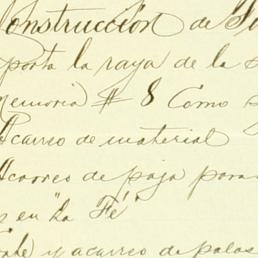 onstrucción de
porta la raya de la
Memoria) # 8 Como
Acarreo de material
Acarreo de paja para
en "La Fé"
y acarreo de palos